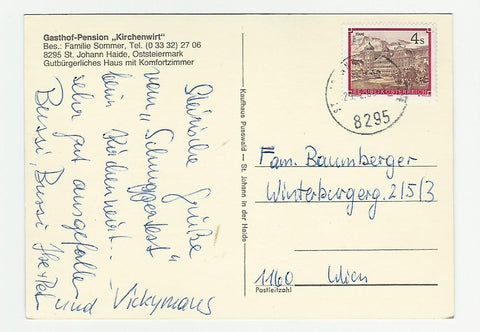 Gasthof-Pension „Kirchenwirt"
Bes.: Familie Sommer, Tel. (0 33 32) 27 06
8295 St. Johann Haide, Oststeiermark
Gutbürgerliches Haus mit Komfortzimmer
Steirische Grüße
vom „
beim Kirchenwirt..
sehr gut ausgefallen
Bussi, Bussi
und Vickymaus
Kaufhaus Pusswald — St. Johann in der Haide
4s
REPUBLIK ÖSTERREICH
8295
Fam. Baumberger
Winterburgerg. 2/5/3
1160 Wien
Postleitzahl